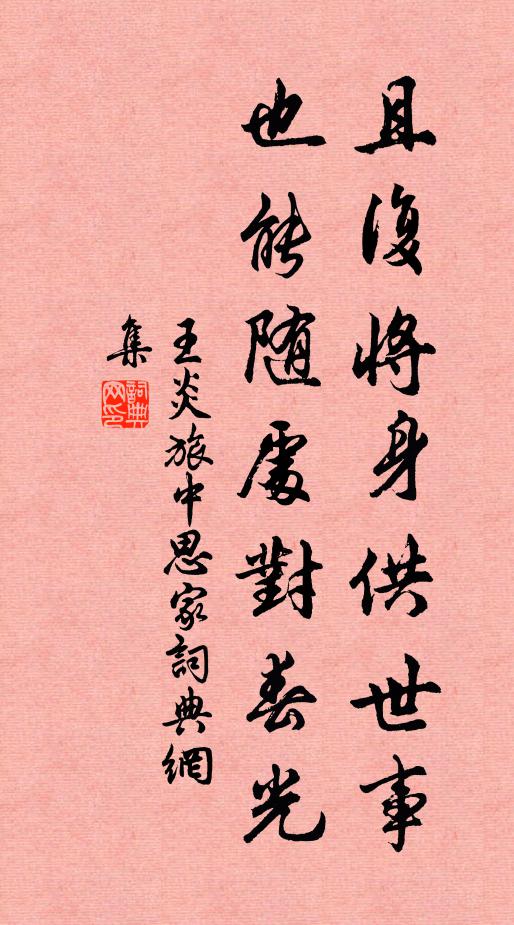 且復將身供世事
也能随處對春光
王炎旅中思家詞典網
集
詞典
网印